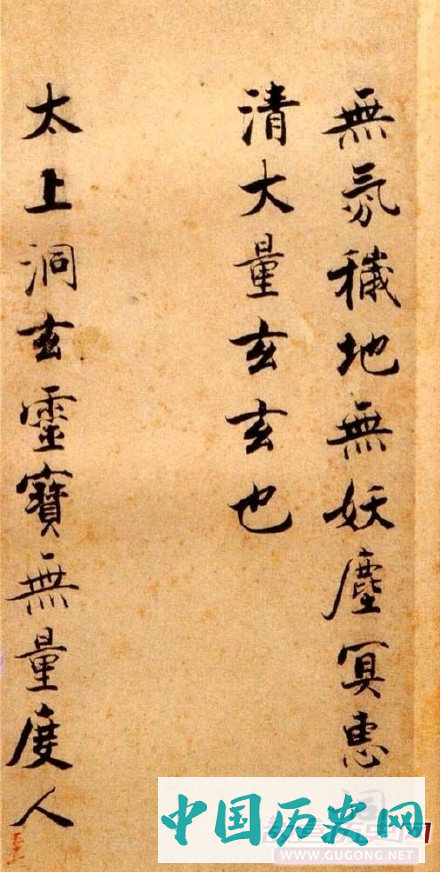 無氛穢地無妖塵冥惠
清大量玄玄也
太上洞玄靈寶無量度人
中国历史网
WWW.GUGONG.NET